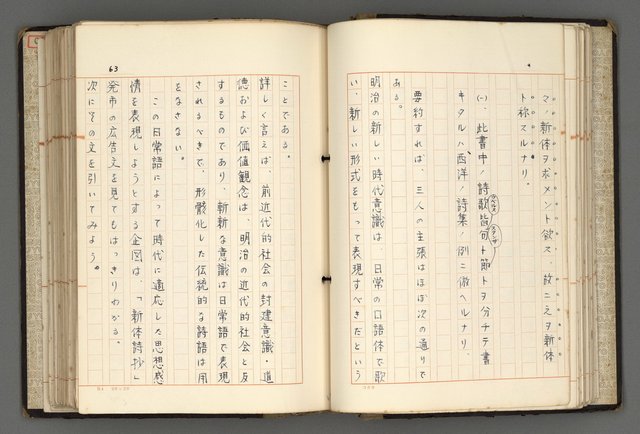 マ、新体ヲ求メント欲ス、故ニ之ヲ新体
ト称スルナリ。
㈠、此書中ノ詩歌皆句ト節トヲ分チテ書
キタルハ、西洋ノ詩集ノ例ニ倣ヘルナリ、
要約すれば、三人の主張はほぼ次の通りで
ある。
明治の新しい時代意識は、日常の口語体で歌
い、新しい形式をもって表現すべきだという
63
ことである。
詳しく言えば、前近代的社会の封建意識・道
徳および価値観念は、明治の近代的社会と反
するものであり、斬新な意識は日常語で表現
されるべきで、形骸化した伝統的な詩語は用
をなさない。
この日常語によって時代に適応した思想感
情を表現しようとする企図は、「新体詩抄」
発市の広告文を見てもはっきりわかる。
次にその文を引いてみよう。